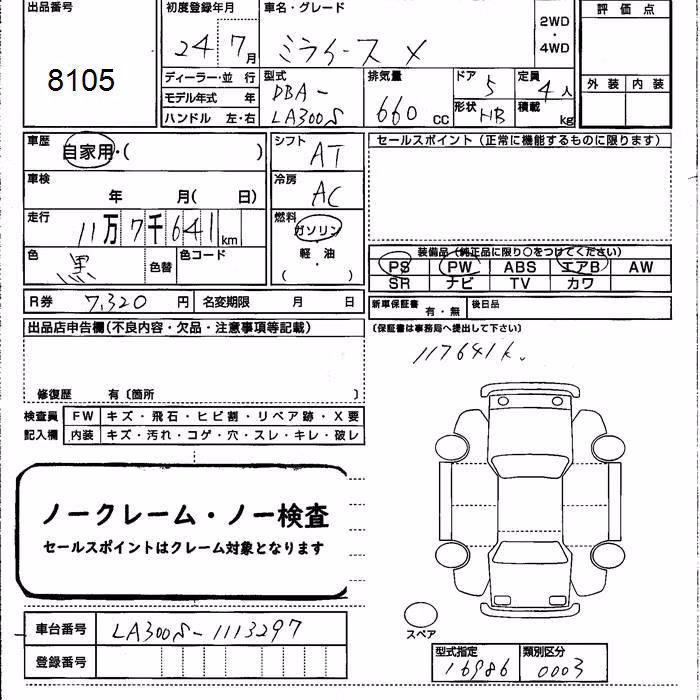 出品番号
8105
初度登録年月
24 7月
車名・グレード
ミライース X
2WD
・
4WD
評価点
外装 内装
ディーラー・並行
モデル年式 年
ハンドル 左・右
型式
DBA-
LA300S
排気量
660 cc
ドア 5
形状 HB
定員 4人
積載 kg
車歴
自家用・( )
車検
年 月( 日)
走行
11万7千641km
色 黒 色替 色コード
シフト
AT
冷房
AC
燃料
ガソリン
軽・油
( )
セールスポイント(正常に機能するものに限ります)
装備品(純正品に限り○をつけてください)
PS PW ABS エアB AW
SR ナビ TV カワ
R券 7,320円 名変期限 月 日
新車保証書 有・無 後日品
(保証書は事務局へ提出して下さい)
117641k.
出品店申告欄(不良内容・欠品・注意事項等記載)
修復歴 有〔箇所 〕
検査員 FW キズ・飛石・ヒビ割・リペア跡・X要
記入欄 内装 キズ・汚れ・コゲ・穴・スレ・キレ・破レ
ノークレーム・ノー検査
セールスポイントはクレーム対象となります
スペア
車台番号 LA300S-1113297
登録番号
型式指定 16986
類別区分 0003